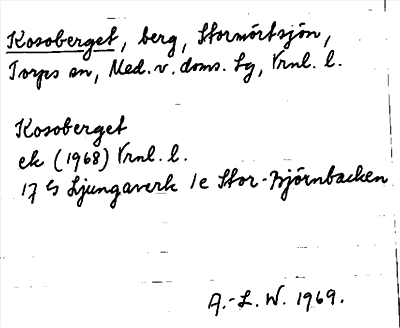 Kosoberget, berg, Stormörtsjön,
Torps sn, Med. v. doms. tg, Vrnl. l.
Kosoberget
ek (1968) Vrnl. l.
17 G Ljungaverk 1e Stor-Björnbacken
A.-L. W. 1969.